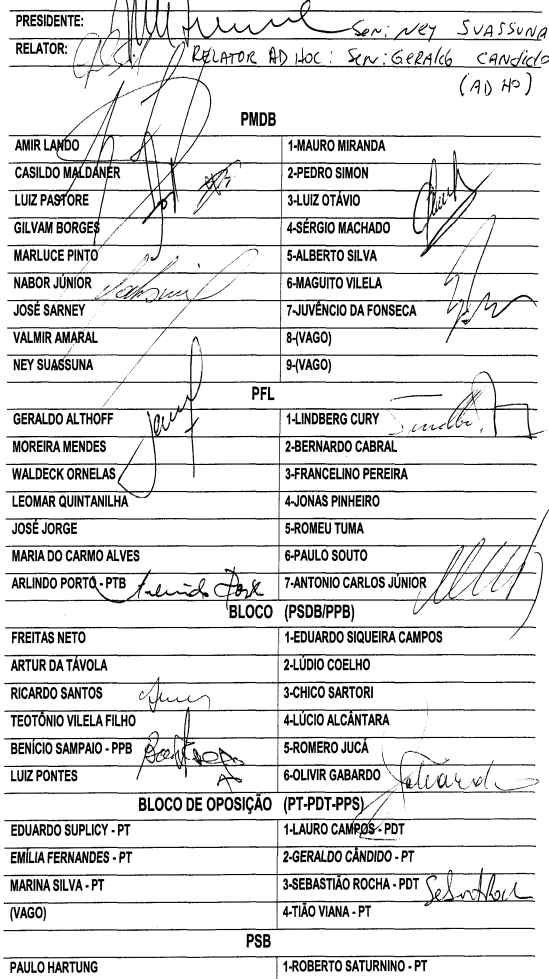 PRESIDENTE: Sen: Ney SUASSUNA
RELATOR: RELATOR AD HOC: Sen: GERALDO CANDIDO
(AD HO)
PMDB
AMIR LANDO 1-MAURO MIRANDA
CASILDO MALDANER 2-PEDRO SIMON
LUIZ PASTORE 3-LUIZ OTÁVIO
GILVAM BORGES 4-SÉRGIO MACHADO
MARLUCE PINTO 5-ALBERTO SILVA
NABOR JÚNIOR 6-MAGUITO VILELA
JOSÉ SARNEY 7-JUVÊNCIO DA FONSECA
VALMIR AMARAL 8-(VAGO)
NEY SUASSUNA 9-(VAGO)
PFL
GERALDO ALTHOFF 1-LINDBERG CURY
MOREIRA MENDES 2-BERNARDO CABRAL
WALDECK ORNELAS 3-FRANCELINO PEREIRA
LEOMAR QUINTANILHA 4-JONAS PINHEIRO
JOSÉ JORGE 5-ROMEU TUMA
MARIA DO CARMO ALVES 6-PAULO SOUTO
ARLINDO PORTO - PTB 7-ANTONIO CARLOS JÚNIOR
BLOCO (PSDB/PPB)
FREITAS NETO 1-EDUARDO SIQUEIRA CAMPOS
ARTUR DA TÁVOLA 2-LÚDIO COELHO
RICARDO SANTOS 3-CHICO SARTORI
TEOTÔNIO VILELA FILHO 4-LÚCIO ALCÂNTARA
BENÍCIO SAMPAIO - PPB 5-ROMERO JUCÁ
LUIZ PONTES 6-OLIVIR GABARDO
BLOCO DE OPOSIÇÃO (PT-PDT-PPS)
EDUARDO SUPLICY - PT 1-LAURO CAMPOS - PDT
EMÍLIA FERNANDES - PT 2-GERALDO CÂNDIDO - PT
MARINA SILVA - PT 3-SEBASTIÃO ROCHA - PDT
(VAGO) 4-TIÃO VIANA - PT
PSB
PAULO HARTUNG 1-ROBERTO SATURNINO - PT